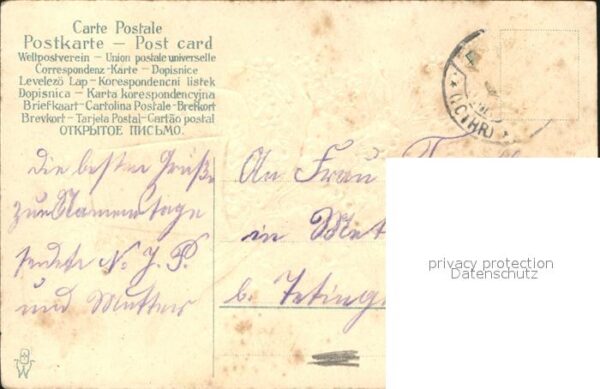 Carte Postale
Postkarte – Post card
Weltpostverein – Union postale universelle
Correspondenz-Karte – Dopisnice
Levelező Lap – Korespondencní listek
Dopisnica – Karta korespondencyjna
Briefkaart – Cartolina Postale – Brefkort
Brevkort – Tarjeta Postal – Cartão postal
ОТКРЫТОЕ ПИСЬМО.
Die besten Grüße
zum Namenstage
sendet N. J. P.
und Mutter
An Frau
in
b.
privacy protection
Datenschutz